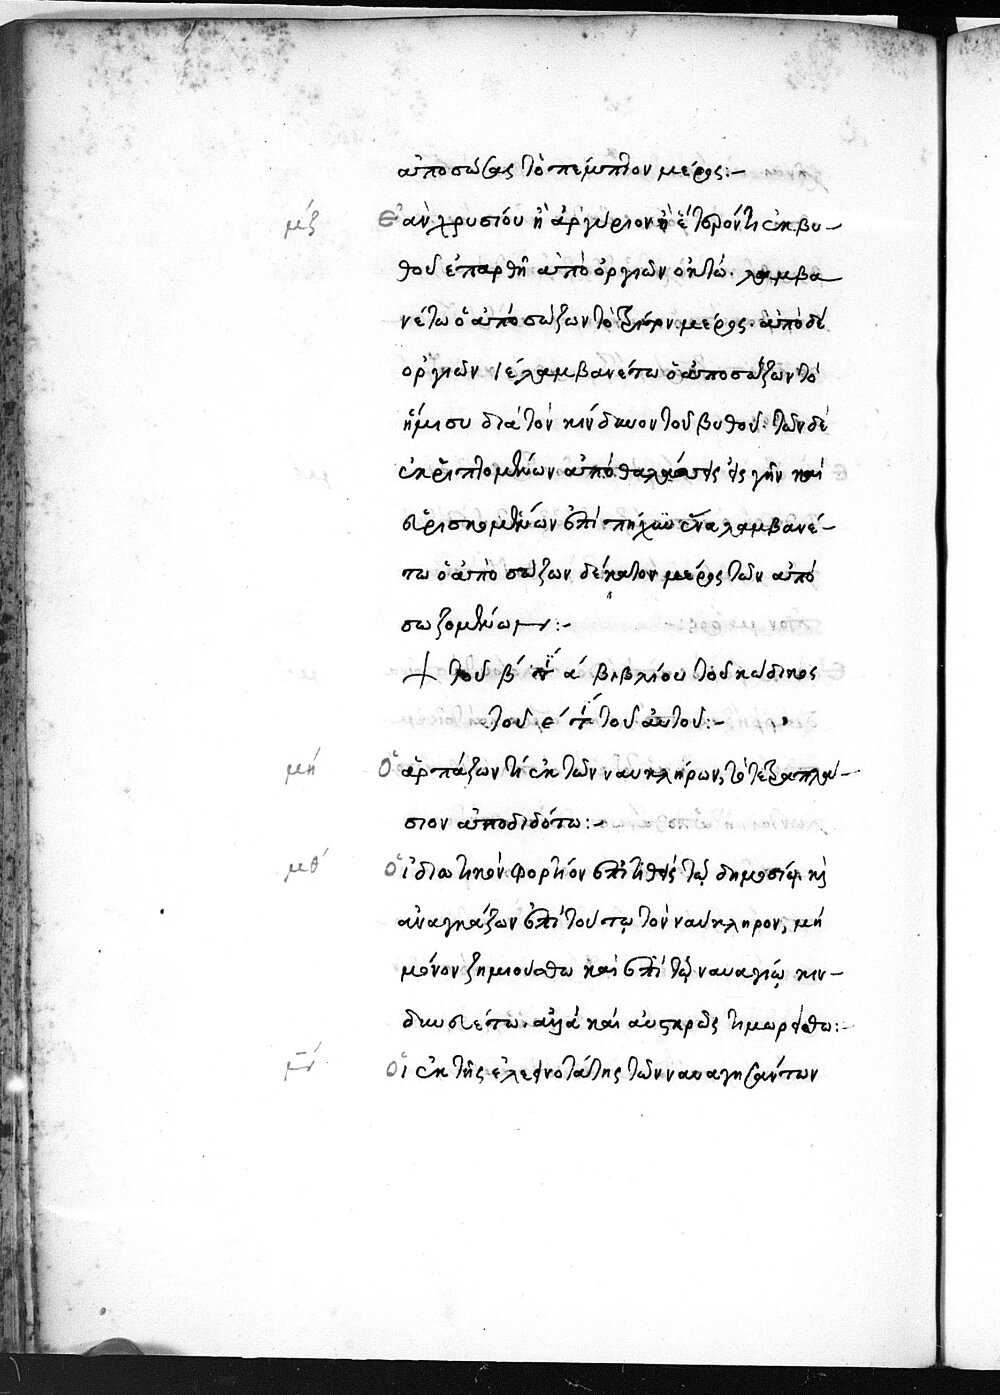 ἀποσώσας τὸ πέμπτον μέρος:-
μζ Ἐὰν χρυσίου ἢ ἀργύριον ἢ ἕτερόν τι ἐκ βυ-
θοῦ ἐπαρθῆ ἀπὸ ὀργιῶν ὀκτώ. λαμβα
νέτω ὁ ἀποσώζων τὸ τρίτον μέρος. ἀπὸ δὲ
ὀργιῶν ιε λαμβανέτω ὁ ἀποσώζων τὸ
ἥμισυ διὰ τὸν κίνδυνον τοῦ βυθοῦ. τῶν δὲ
ἐκριπτομένων ἀπὸ θαλάσσης εἰς γῆν καὶ
εὑρισκομένων ἐπὶ πῆχυν ἕνα λαμβανέ-
τω ὁ ἀποσώζων δέκατον μέρος τῶν ἀπο
σωζομένων:-
+ τοῦ β τι α βιβλίου τοῦ κώδικος
τοῦ τοῦ αὐτοῦ:-
μη Ὁ ἁρπάζων τὶ ἐκ τῶν ναυκλήρων, τὸ τετραπλά-
σιον ἀποδιδότω:-
μθ Ὁ ἰδιωτικὸν φορτίον ἐπιτιθεὶς τῷ δημοσίῳ καὶ
ἀναγκάζων ἐπὶ τούτῳ τὸν ναύκληρον, μὴ
μόνον ζημιούσθω καὶ ἐπὶ τῷ ναυαγίῳ κιν-
δυνευέτω. ἀλλὰ καὶ αὐστηρῶς τιμωρείσθω:-
ν Οἱ ἐκ τῆς ἐλεεινοτάτης τῶν ναυαγησάντων